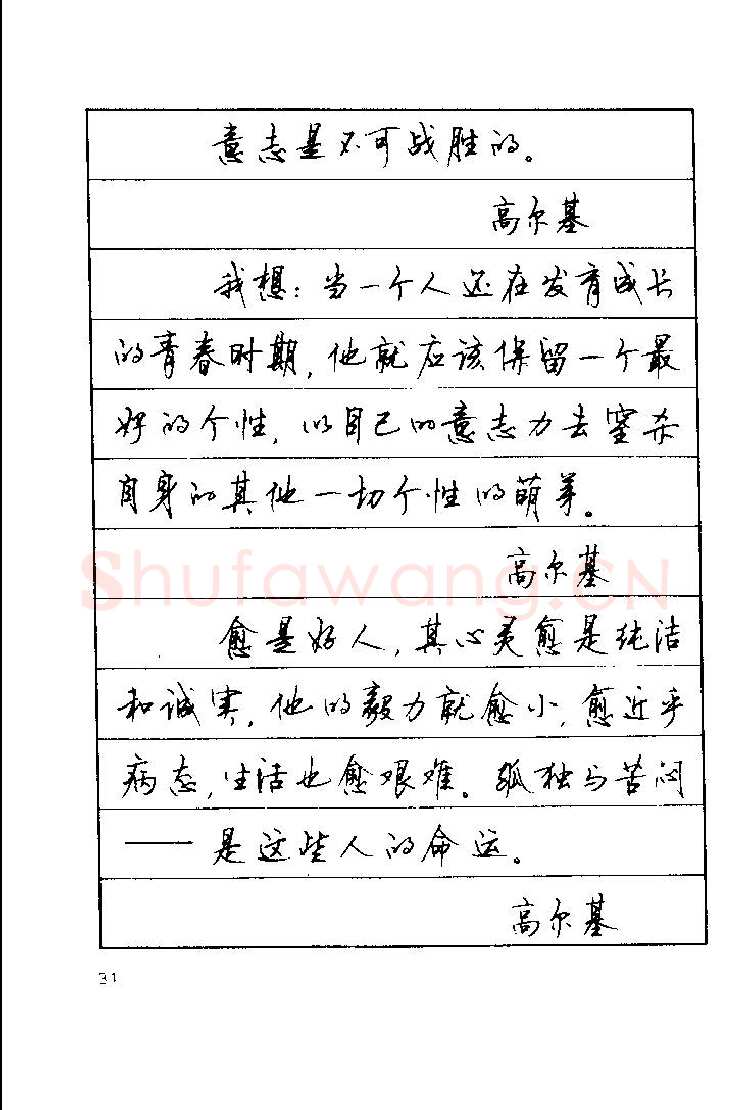 意志是不可战胜的。
高尔基
我想：当一个人还在发育成长
的青春时期，他就应该保留一个最
好的个性，以自己的意志力去窒杀
自身的其他一切个性的萌芽。
高尔基
Shufawang.CN
愈是好人，其心灵愈是纯洁
和诚实，他的毅力就愈小，愈近乎
病态，生活也愈艰难。孤独与苦闷
——是这些人的命运。
高尔基
31